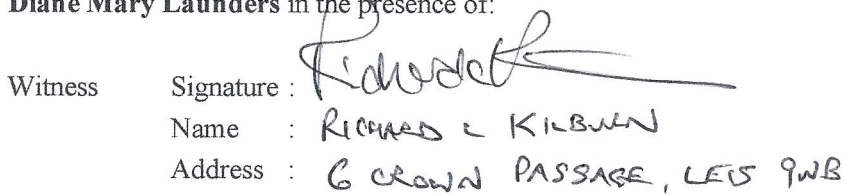 Diane Mary Launders in the presence of:
Witness Signature :
Name : RICHARD L KILBURN
Address : 6 CROWN PASSAGE, LE15 9NB